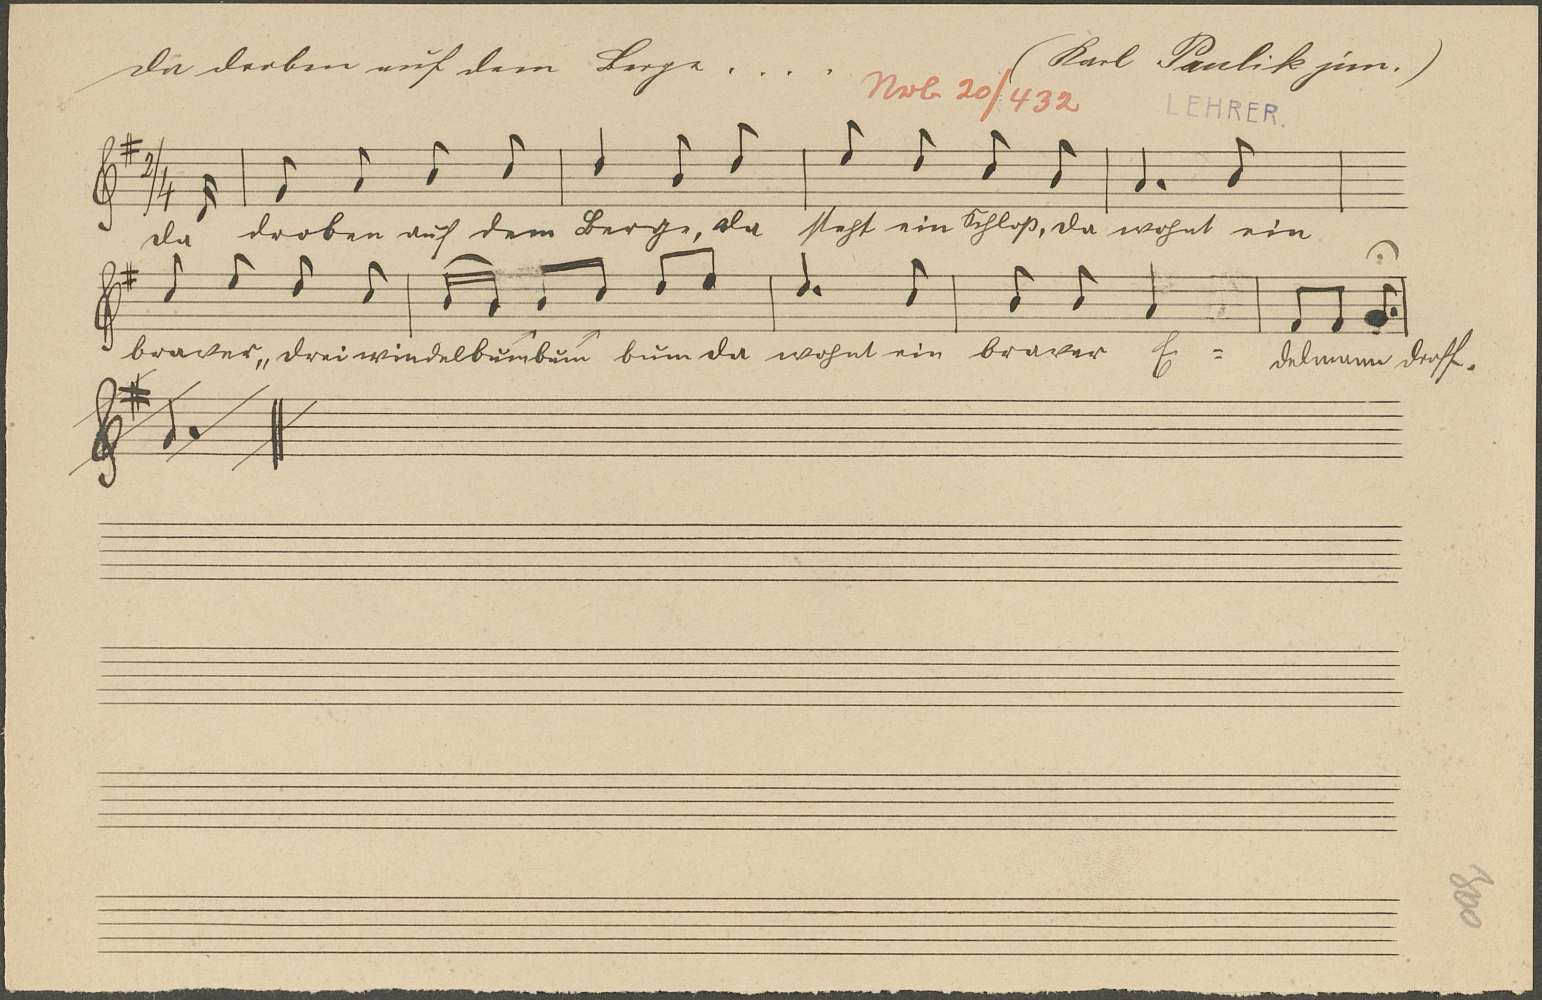 Da droben auf dem Berge . . . . (Karl Paulik jun.)
Nrb 20/432
LEHRER.
2/4
da droben auf dem Berge, da steht ein Schloß, da wohnt ein
braver,, drei windelbumbum bum da wohnt ein braver E = delmann
800